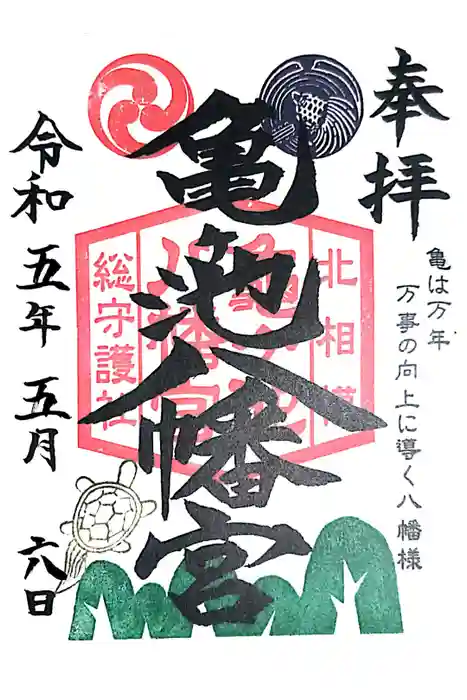 奉拝
亀は万年
万事の向上に導く八幡様
北相模
亀ヶ池
八幡宮
総守護社
亀池八幡宮
令和五年五月六日